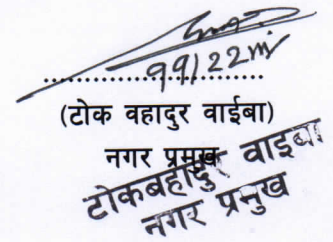 (टोक वहादुर वाईबा)
नगर प्रमुख
टोकबहादुर वाइबा
नगर प्रमुख